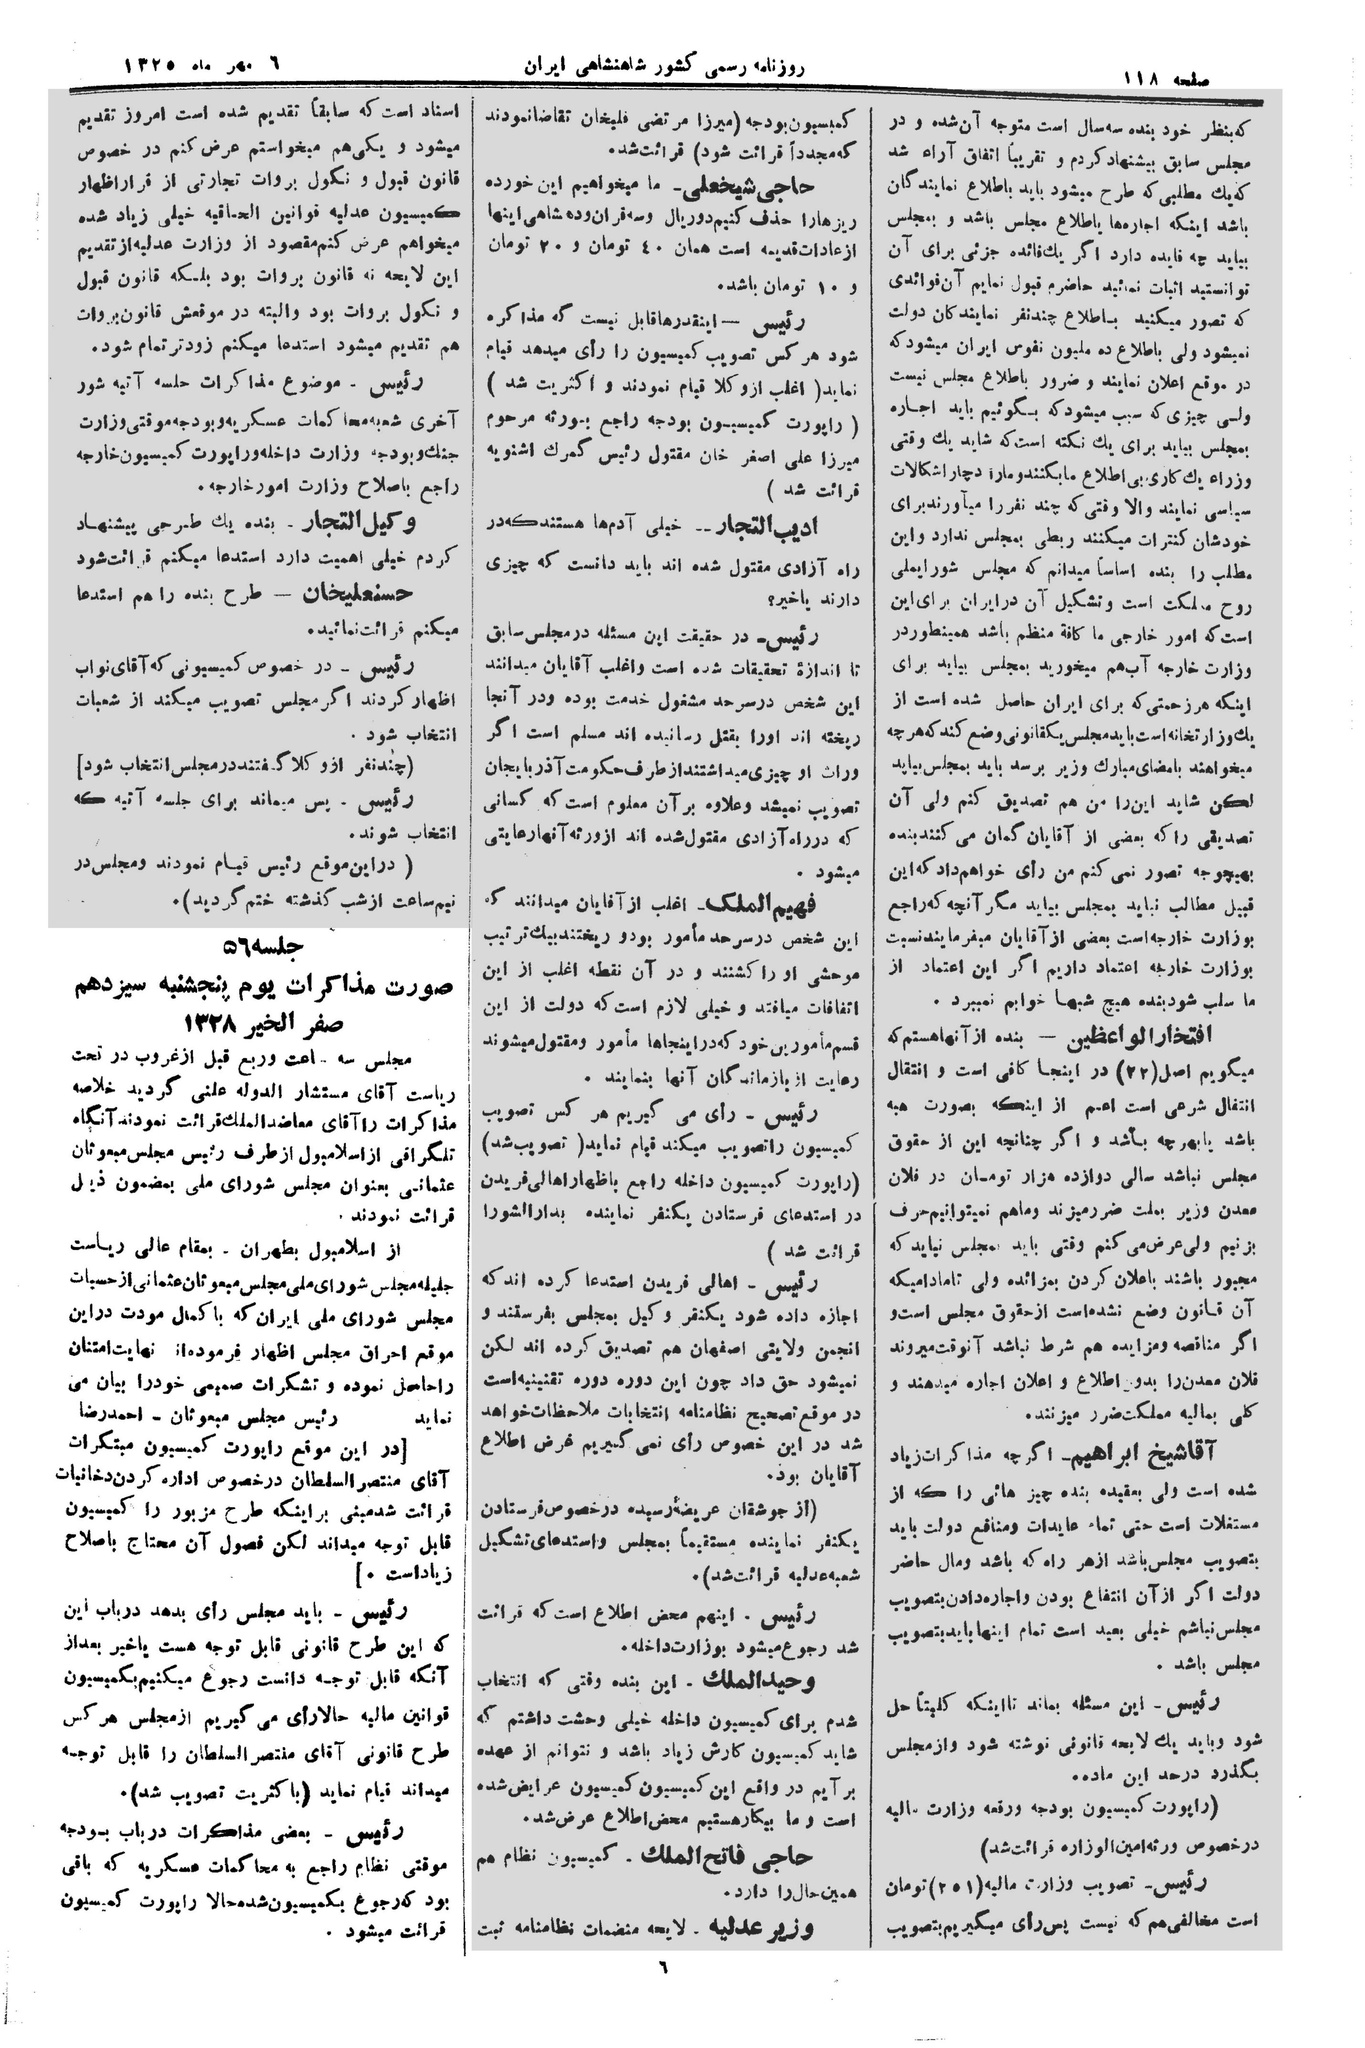 صفحه ۱۱۸
روزنامه رسمی کشور شاهنشاهی ایران
۶ مهر ماه ۱۳۲۵
که بنظر خود بنده سه سال است متوجه آن شده و در
مجلس سابق پیشنهاد کردم و تقریباً اتفاق آراء شد
که یك مطلبی که طرح میشود باید باطلاع نمایندگان
باشد اینکه اجاره‌ها باطلاع مجلس باشد و بمجلس
بیاید چه فایده دارد اگر یك فائده جزئی برای آن
توانستید اثبات نمائید حاضرم قبول نمایم آن فوائدی
که تصور میکنید باطلاع چند نفر نمایندگان دولت
نمیشود ولی باطلاع ده ملیون نفوس ایران میشود که
در موقع اعلان نمایند و ضرور باطلاع مجلس نیست
ولی چیزی که سبب میشود که بگوئیم باید اجاره
بمجلس بیاید برای یك نکته است که شاید یك وقتی
وزراء یك کاری بی اطلاع ما بکنند و مارا دچار اشکالات
سیاسی نمایند والا وقتی که چند نفر را میآورند برای
خودشان کنترات میکنند ربطی بمجلس ندارد و این
مطلب را بنده اساساً میدانم که مجلس شورایملی
روح مملکت است و تشکیل آن در ایران برای این
است که امور خارجی ما کافة منظم باشد همینطور در
وزارت خارجه آب هم میخورید بمجلس بیاید برای
اینکه هر زحمتی که برای ایران حاصل شده است از
یك وزارتخانه است باید مجلس یکقانونی وضع کند که هر چه
میخواهند بامضای مبارك وزیر برسد باید بمجلس بیاید
لکن شاید این را من هم تصدیق کنم ولی آن
تصدیقی را که بعضی از آقایان گمان می کنند بنده
بهیچوجه تصور نمی کنم من رأی خواهم داد که این
قبیل مطالب نباید بمجلس بیاید مگر آنچه که راجع
بوزارت خارجه است بعضی از آقایان میفرمایند نسبت
بوزارت خارجه اعتماد داریم اگر این اعتماد از
ما سلب شود بنده هیچ شبها خوابم نمیبرد .
افتخار الواعظین — بنده از آنها هستم که
میگویم اصل (۲۲) در اینجا کافی است و انتقال
انتقال شرعی است اعم از اینکه بصورت هبه
باشد یا بهرچه باشد و اگر چنانچه این از حقوق
مجلس نباشد سالی دوازده هزار تومان در فلان
معدن وزیر بملت ضرر میزند و ماهم نمیتوانیم حرف
بزنیم ولی عرض می کنم وقتی باید بمجلس نیاید که
مجبور باشند باعلان کردن بمزائده ولی تامادامیکه
آن قانون وضع نشده است از حقوق مجلس است و
اگر مناقصه و مزایده هم شرط نباشد آنوقت میروند
فلان معدن را بدون اطلاع و اعلان اجاره میدهند و
کلی بمالیه مملکت ضرر میزنند.
آقاشیخ ابراهیم ـ اگر چه مذاکرات زیاد
شده است ولی بعقیده بنده چیز هائی را که از
مستغلات است حتی تمام عایدات و منافع دولت باید
بتصویب مجلس باشد از هر راه که باشد و مال حاضر
دولت اگر از آن انتفاع بودن و اجاره دادن بتصویب
مجلس نباشم خیلی بعید است تمام اینها باید بتصویب
مجلس باشد .
رئیس ـ این مسئله بماند تا اینکه کلیتاً حل
شود و باید یك لایحه قانونی نوشته شود و از مجلس
بگذرد در حد این ماده..
(راپورت کمیسیون بودجه ورقعه وزارت مالیه
در خصوص ورثه امین الوزاره قرائت شد)
رئیس ـ تصویب وزارت مالیه (۲۵۱) تومان
است مخالفی هم که نیست پس رأی میگیریم بتصویب
کمیسیون بودجه (میرزا مرتضی قلیخان تقاضا نمودند
که مجدداً قرائت شود) قرائت شد.
حاجی شیخعلی ـ ما میخواهیم این خورده
ریزها را حذف کنیم دو ریال و سه قران و ده شاهی اینها
از عادات قدیمه است همان ۴۰ تومان و ۲۰ تومان
و ۱۰ تومان باشد.
رئیس — اینقدرها قابل نیست که مذاکره
شود هر کس تصویب کمیسیون را رأی میدهد قیام
نماید ( اغلب از وکلا قیام نمودند و اکثریت شد )
( راپورت کمیسیون بودجه راجع بورثه مرحوم
میرزا علی اصغر خان مقتول رئیس گمرك اشنویه
قرائت شد )
ادیب التجار ــ خیلی آدم‌ها هستند که در
راه آزادی مقتول شده اند باید دانست که چیزی
دارند یا خیر؟
رئیس ـ در حقیقت این مسئله در مجلس سابق
تا اندازهٔ تحقیقات شده است و اغلب آقایان میدانند
این شخص در سرحد مشغول خدمت بوده و در آنجا
ریخته اند اورا بقتل رسانیده اند مسلم است اگر
وراث او چیزی میداشتند از طرف حکومت آذربایجان
تصویب نمیشد و علاوه بر آن معلوم است که کسانی
که در راه آزادی مقتول شده اند از ورثه آنها رعایتی
میشود .
فهیم الملك ـ اغلب از آقایان میدانند که
این شخص در سرحد مأمور بود و ریختند بیك ترتیب
موحشی او را کشتند و در آن نقطه اغلب از این
اتفاقات میافتد و خیلی لازم است که دولت از این
قسم مأمورین خود که در اینجاها مأمور و مقتول میشوند
رعایت از بازماندگان آنها بنمایند .
رئیس ـ رأی می گیریم هر کس تصویب
کمیسیون را تصویب میکند قیام نماید ( تصویب شد)
(راپورت کمیسیون داخله راجع باظهار اهالی فریدن
در استدعای فرستادن یکنفر نماینده بدارالشورا
قرائت شد )
رئیس ـ اهالی فریدن استدعا کرده اند که
اجازه داده شود یکنفر وکیل بمجلس بفرستند و
انجمن ولایتی اصفهان هم تصدیق کرده اند لکن
نمیشود حق داد چون این دوره دوره تقنینیه است
در موقع تصحیح نظامنامه انتخابات ملاحظات خواهد
شد در این خصوص رأی نمی گیریم غرض اطلاع
آقایان بود.
(از جوشقان عریضهٔ رسیده در خصوص فرستادن
یکنفر نماینده مستقیماً بمجلس و استدعای تشکیل
شعبه عدلیه قرائت شد).
رئیس . اینهم محض اطلاع است که قرائت
شد رجوع میشود بوزارت داخله.
وحید الملك ـ این بنده وقتی که انتخاب
شدم برای کمیسیون داخله خیلی وحشت داشتم که
شاید کمیسیون کارش زیاد باشد و نتوانم از عهده
بر آیم در واقع این کمیسیون کمیسیون عرایض شده
است و ما بیکار هستیم محض اطلاع عرض شد.
حاجی فاتح الملك . کمیسیون نظام هم
همین حال را دارد.
وزیر عدلیه . لایحه منضمات نظامنامه ثبت
اسناد است که سابقاً تقدیم شده است امروز تقدیم
میشود و یکی هم میخواستم عرض کنم در خصوص
قانون قبول و نکول بروات تجارتی از قرار اظهار
کمیسیون عدلیه قوانین الحاقیه خیلی زیاد شده
میخواهم عرض کنم مقصود از وزارت عدلیه از تقدیم
این لایحه نه قانون بروات بود بلکه قانون قبول
و نکول بروات بود و البته در موقعش قانون بروات
هم تقدیم میشود استدعا میکنم زودتر تمام شود.
رئیس . موضوع مذاکرات جلسه آتیه شور
آخری شعبه محاکمات عسکریه و بودجه موقتی وزارت
جنك و بودجه وزارت داخله و راپورت کمیسیون خارجه
راجع باصلاح وزارت امور خارجه.
وکیل التجار . بنده یك طرحی پیشنهاد
کردم خیلی اهمیت دارد استدعا میکنم قرائت شود
حسنعلیخان — طرح بنده را هم استدعا
میکنم قرائت نمائید.
رئیس ـ در خصوص کمیسیونی که آقای نواب
اظهار کردند اگر مجلس تصویب میکند از شعبات
انتخاب شود .
(چند نفر از وکلا گفتند در مجلس انتخاب شود]
رئیس . پس میماند برای جلسه آتیه که
انتخاب شوند.
( در این موقع رئیس قیام نمودند و مجلس در
نیم ساعت از شب گذشته ختم گردید).
جلسه ۵۶
صورت مذاکرات یوم پنجشنبه سیزدهم
صفر الخیر ۱۳۲۸
مجلس سه ساعت وربع قبل از غروب در تحت
ریاست آقای مستشار الدوله علنی گردید خلاصه
مذاکرات را آقای معاضد الملك قرائت نمودند آنگاه
تلگرافی از اسلامبول از طرف رئیس مجلس مبعوثان
عثمانی بعنوان مجلس شورای ملی بمضمون ذیل
قرائت نمودند .
از اسلامبول بطهران . بمقام عالی ریاست
جلیله مجلس شورای ملی مجلس مبعوثان عثمانی از حسیات
مجلس شورای ملی ایران که با کمال مودت در این
موقع احراق مجلس اظهار فرموده اند نهایت امتنان
را حاصل نموده و تشکرات صمیمی خود را بیان می
نماید رئیس مجلس مبعوثان ـ احمد رضا
[در این موقع راپورت کمیسیون مبتکرات
آقای منتصر السلطان در خصوص اداره کردن دخانیات
قرائت شد مبنی بر اینکه طرح مزبور را کمیسیون
قابل توجه میداند لکن فصول آن محتاج باصلاح
زیاد است .]
رئیس . باید مجلس رأی بدهد در باب این
که این طرح قانونی قابل توجه هست یا خیر بعد از
آنکه قابل توجه دانست رجوع میکنیم بکمیسیون
قوانین مالیه حالا رأی می گیریم از مجلس هر کس
طرح قانونی آقای منتصر السلطان را قابل توجه
میداند قیام نماید (با کثریت تصویب شد).
رئیس . بعضی مذاکرات در باب بودجه
موقتی نظام راجع به محاکمات عسکریه که باقی
بود که رجوع بکمیسیون شده حالا راپورت کمیسیون
قرائت میشود .
۶